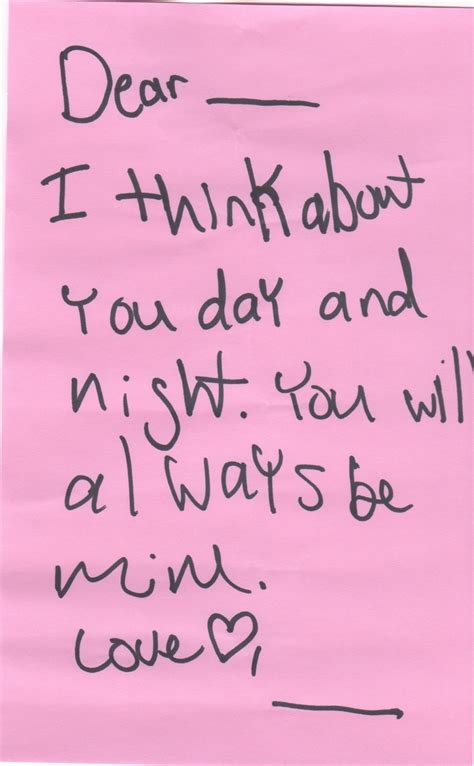 Dear ___
I think about
you day and
night. You will
always be
mine.
Love♡,
___